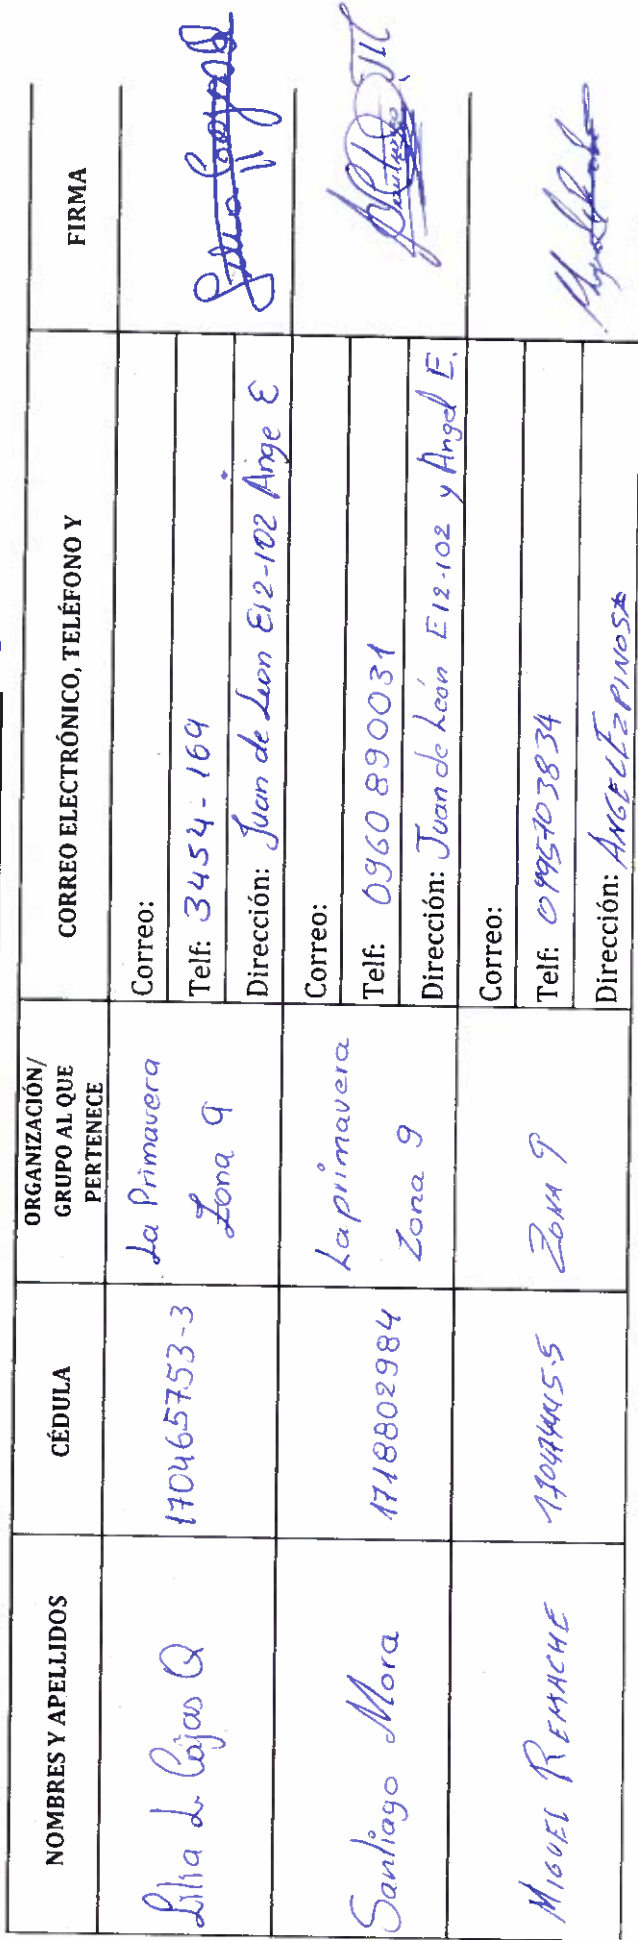 NOMBRES Y APELLIDOS
CÉDULA
ORGANIZACIÓN/
GRUPO AL QUE
PERTENECE
CORREO ELECTRÓNICO, TELÉFONO Y
FIRMA
Lilia L. Cajas Q
170465753-3
La Primavera
Zona 9
Correo:
Telf: 3454-169
Dirección: Juan de Leon E12-102 Ange E
Santiago Mora
1718802984
La primavera
Zona 9
Correo:
Telf: 0960890031
Dirección: Juan de León E12-102 y Angel E.
MIGUEL REMACHE
ZONA 9
Correo:
Telf: 0995703834
Dirección: ANGEL EZPINOSA